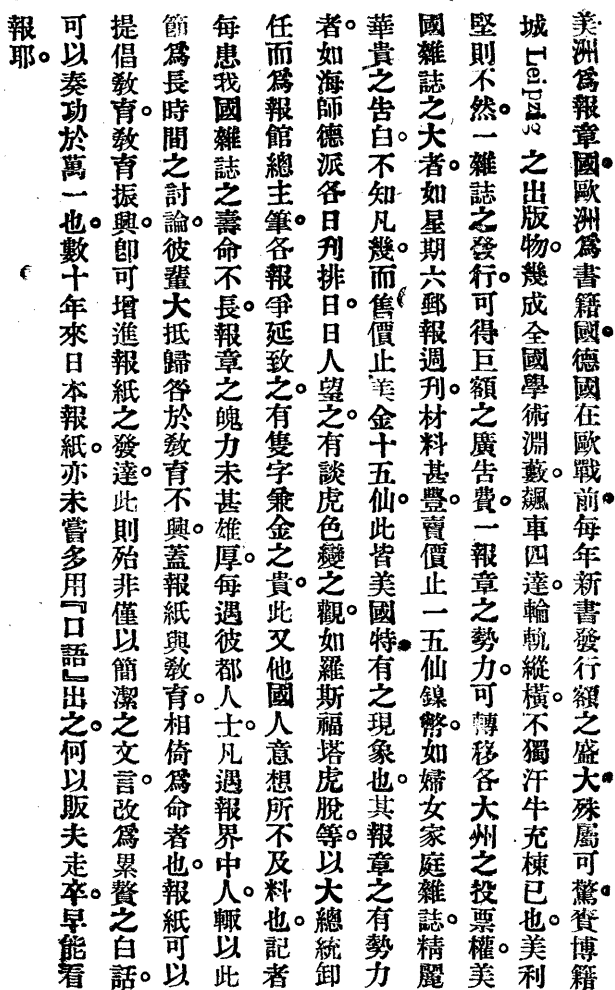 美洲爲報章國歐洲爲書籍國德國在歐戰前每年新書發行額之盛大殊屬可驚賚博籍
城Leipzig之出版物。幾成全國學術淵藪。飆車四達。輪軌縱橫。不獨汗牛充棟已也。美利
堅則不然。一雜誌之發行。可得巨額之廣告費。一報章之勢力。可轉移各大州之投票權。美
國雜誌之大者。如星期六郵報週刊。材料甚豐。賣價止一五仙鎳幣。如婦女家庭雜誌。精麗
華貴之告白。不知凡幾。而售價止美金十五仙。此皆美國特有之現象也。其報章之有勢力
者。如海師德派各日刊排日。日人望之。有談虎色變之觀。如羅斯福塔虎脫等。以大總統卸
任而爲報館總主筆。各報爭延致之。有隻字兼金之貴。此又他國人意想所不及料也。記者
每患我國雜誌之壽命不長。報章之魄力未甚雄厚。每遇彼都人士。凡遇報界中人。輒以此
節爲長時間之討論。彼輩大抵歸咎於敎育不興。蓋報紙與敎育。相倚爲命者也。報紙可以
提倡敎育。敎育振興。卽可增進報紙之發達。此則殆非僅以簡潔之文言。改爲累贅之白話。
可以奏功於萬一也。數十年來日本報紙。亦未嘗多用『口語』出之。何以販夫走卒。早能看
報耶。